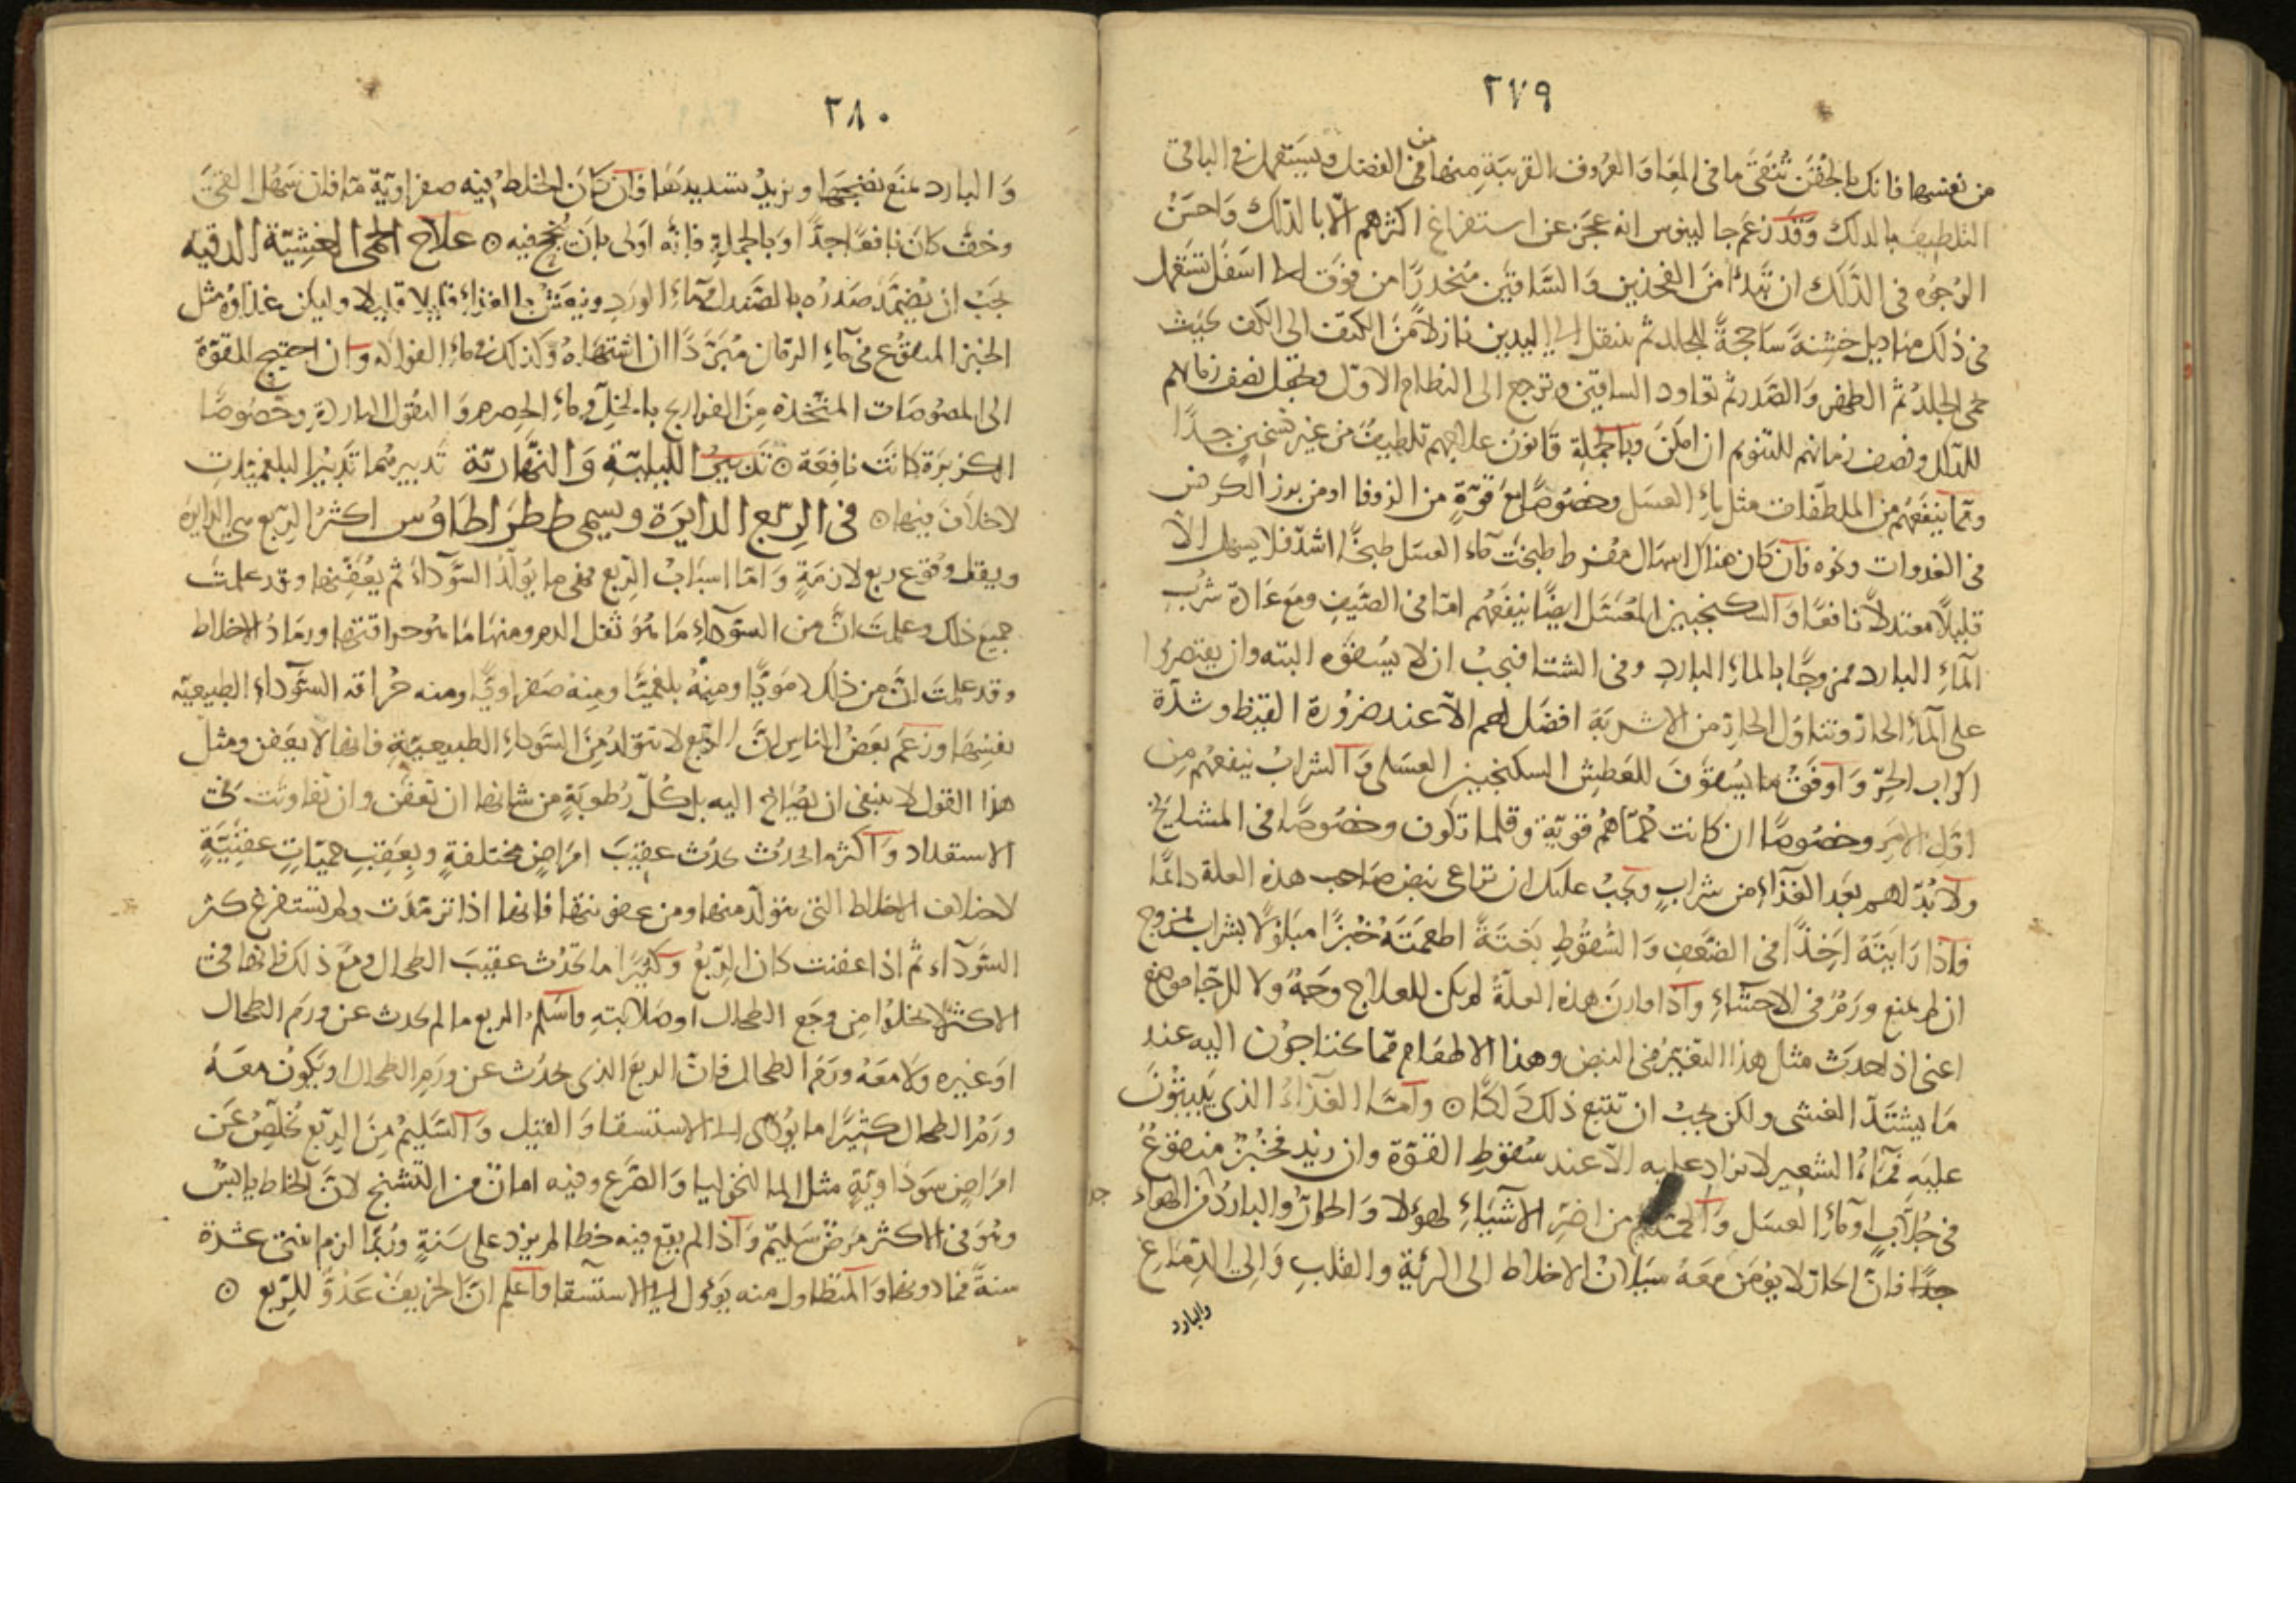 ٢٧٩
من نفسها فانك بالحقن تنقى ما فى المعا والعروق القريبة منها من الفضل ويستعمل فى الباقى
التلطيف بالدلك وقد زعم جالينوس انه عجز عن استفراغ اكثرهم الا بالدلك واحسن
الوجوه فى الدلك ان تبدأ من الفخذين والساقين منحدرا من فوق الى اسفل تستعمل
فى ذلك مناديل خشنة ساحجة للجلد ثم ينتقل الى اليدين نازلا من الكتف الى الكف بحيث
يحمى الجلد ثم الظهر والصدر ثم تعاود الساقين وترجع الى النظام الاول وتجعل نصف زمانهم
للدلك ونصف زمانهم للتنويم ان امكن وبالجملة قانون علاجهم تلطيف من غير تسخين جدا
ومما ينفعهم من الملطفات مثل ماء العسل وخصوصا مع قوة من الزوفا او من بزر الكرفس
فى الغدوات ونحوه فان كان هناك اسهال مفرط طبخت ماء العسل طبخا اشد فلا يسهل الا
قليلا معتدلا نافعا والسكنجبين المعسل ايضا ينفعهم اما فى الصيف ومع عادة شرب
الماء البارد ممزوجا بالماء البارد وفى الشتا فيجب ان لا يسقوه البته وان يقتصروا
على الماء الحار وتناول الحار من الاشربة افضل لهم الا عند ضرورة القيظ وشدة
اكراب الحر واوفق ما يسقون للعطش السكنجبين العسلى والشراب ينفعهم من
اول الامر وخصوصا ان كانت حماهم قوية وقلما تكون وخصوصا فى المشايخ
ولا بد لهم بعد الغذاء من شراب ويجب عليك ان تراعى نبض صاحب هذه العلة دائما
فاذا رايته اخذا فى الضعف والسقوط بغتة اطعمته خبزا مبلولا بشراب ممزوج
ان لم يمنع ورم فى الاحشاء واذا قارن هذه العلة لم يكن للعلاج وجه ولا للرجا موضع
اعنى اذا حدث مثل هذا التغير فى النبض وهذا الاطعام مما يحتاجون اليه عند
ما يشتد الغشى ولكن يجب ان تتبع ذلك دلكا ۞ واما الغذاء الذى يبيتون
عليه فماء الشعير لا يزاد عليه الا عند سقوط القوة وان زيد فخبز منقوع
فى جلاب او ماء العسل والحمام من اضر الاشياء لهؤلا والحار والبارد من الهواء
جدا فان الحار لا يؤمن معه سيلان الاخلاط الى الرئة والقلب والى الدماغ
والبارد
٢٨٠
والبارد يمنع نضجها ويزيد تسديدها فان كان الخلط فيه صفراوية ما فان سهل القئ
وخف كان نافعا جدا وبالجملة فانه اولى بان ينجع فيه ۞ علاج الحمى الغشية الدقيه
يجب ان يضمد صدره بالصندل وماء الورد وينعش بالغذاء قليلا قليلا وليكن غذاؤه مثل
الخبز المنقوع فى ماء الرمان مبردا ان اشتهاه وكذلك فى ماء الفواكه وان احتيج لقوة
الى المصوصات المتخذة من الفراريج بالخل وماء الحصرم والبقول الباردة وخصوصا
الكزبرة كانت نافعة ۞ تدبير الليلية والنهارية تدبيرهما تدبير البلغميات
لا خلاف فيها ۞ فى الربع الدايرة ويسمى ططراطاوس اكثر الربع هى الدايرة
ويقل وقوع ربع لازمة واما اسباب الربع فهى ما يولد السوداء ثم يعفنها وقد علمت
جميع ذلك وعلمت ان من السوداء ما هو ثفل الدم ومنها ما هو حراقتها ورماد الاخلاط
وقد علمت ان من ذلك دمويا ومنه بلغميا ومنه صفراويا ومنه حراقة السوداء الطبيعيه
نفسها وزعم بعض الناس ان الربع لا تتولد من السوداء الطبيعية فانها لا يعفن ومثل
هذا القول لا ينبغى ان يصاخ اليه بل كل رطوبة من شانها ان تعفن وان تفاوتت فى
الاستعداد واكثر ما تحدث تحدث عقيب امراض مختلفة وبعقب حميات عفنية
لاختلاف الاخلاط التى تتولد منها ومن عفونتها فانها اذا ترمدت ولم تستفرغ كثر
السوداء ثم اذا عفنت كان الربع وكثيرا ما تحدث عقيب الطحال ومع ذلك فانها فى
الاكثر لا تخلوا من وجع الطحال او صلابته واسلم الربع ما لم يحدث عن ورم الطحال
او غيره ولا معه ورم الطحال فان الربع الذى يحدث عن ورم الطحال او يكون معه
ورم الطحال كثيرا ما يؤدى الى الاستسقا والقتيل والسليم من الربع يخلص عن
امراض سوداوية مثل المالنخوليا والصرع وفيه امان من التشنج لان الخلط يابس
وهو فى الاكثر مرض سليم واذا لم يقع فيه خطا لم يزد على سنة وربما لزم اثنتى عشرة
سنة فما دونها والمتطاول منه يؤول الى الاستسقا واعلم ان الخريف عدو للربع ۞